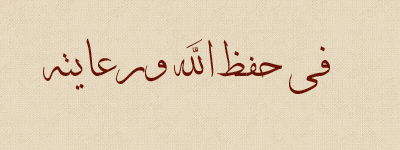 فى حفظ الله ورعايته